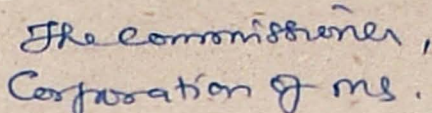 The commissioner,
Corporation of ms.